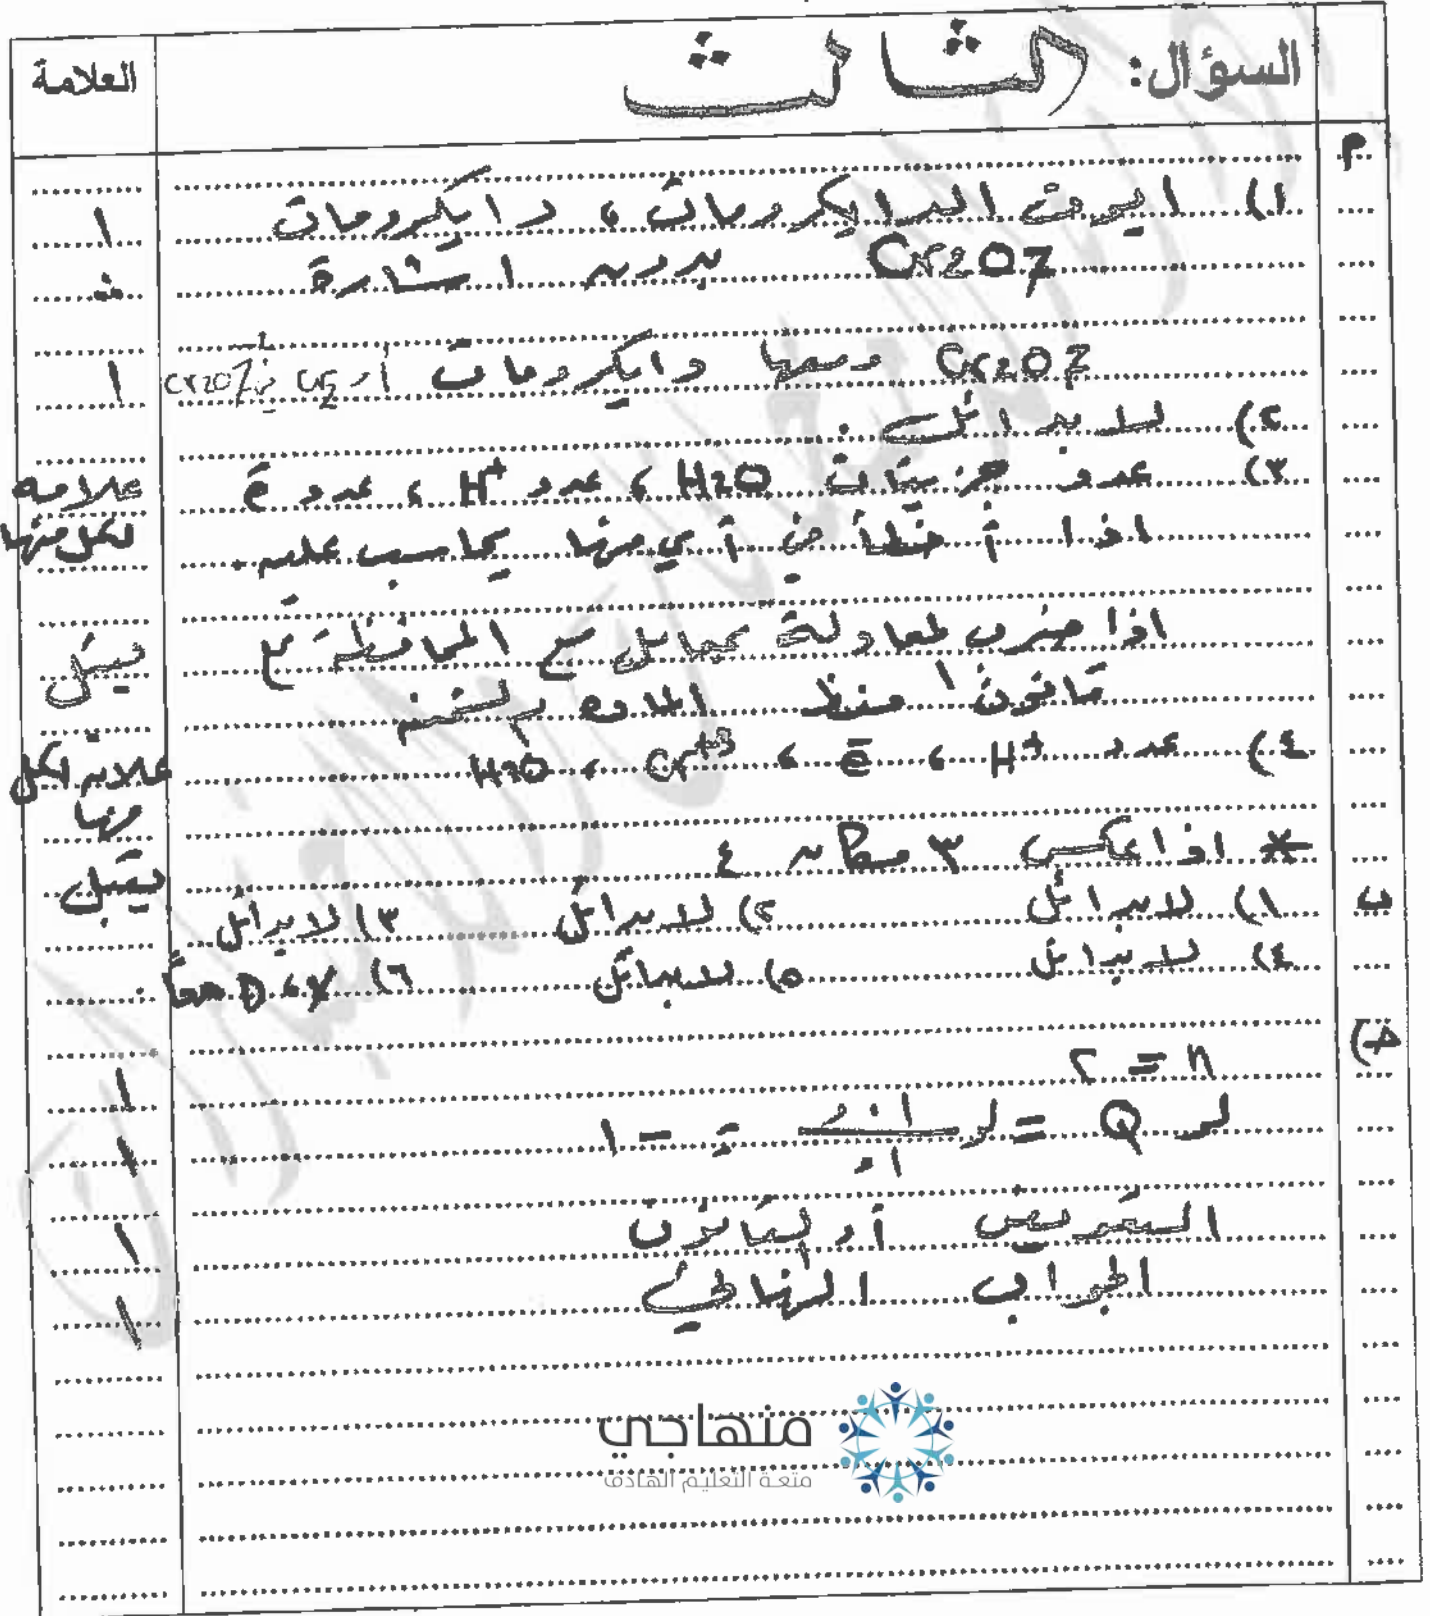 السؤال: الثالث
العلامة
م
١) ايون الدايكرومات ، دايكرومات
١
Cr2O7 بدون اشارة
Cr2O7 وسمها دايكرومات أو Cr2O7
١
٢) لا بدائل .
٣) عدد جزيئات H2O ، عدد H+ ، عدد e-
علامه لكل منها
اذا أخطأ في أي منها يحاسب عليه .
اذا ضرب المعادلة بمعامل مع المحافظة ع
يقبل
قانون حفظ المادة والشحنة
٤) عدد H+ ، e- ، Cr+3 ، H2O
علامة لكل منها
* اذا عكس ٣ مكان ٤
يقبل
ب
١) لا بدائل ٢) لا بدائل ٣) لا بدائل
٤) لا بدائل ٥) لا بدائل ٦) D ، X معاً .
ج)
n = ٢
١
لو Q = لو = - ١
١
التعويض أو القانون
١
الجواب النهائي
١
منهاجي
متعة التعليم الهادف